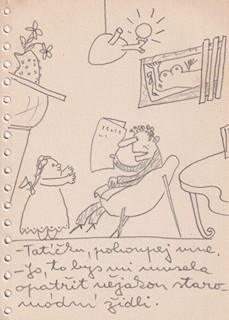 - Tatíčku, pohoupej mne.
- Jo, to bys mi musela
opatřit nějakou staro-
módní židli.